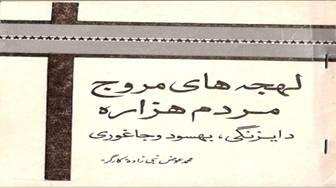 لهجه های مروج
مردم هزاره
دایزنگی، بهسود و جاغوری
محمد عوض نبی زاده کارگر